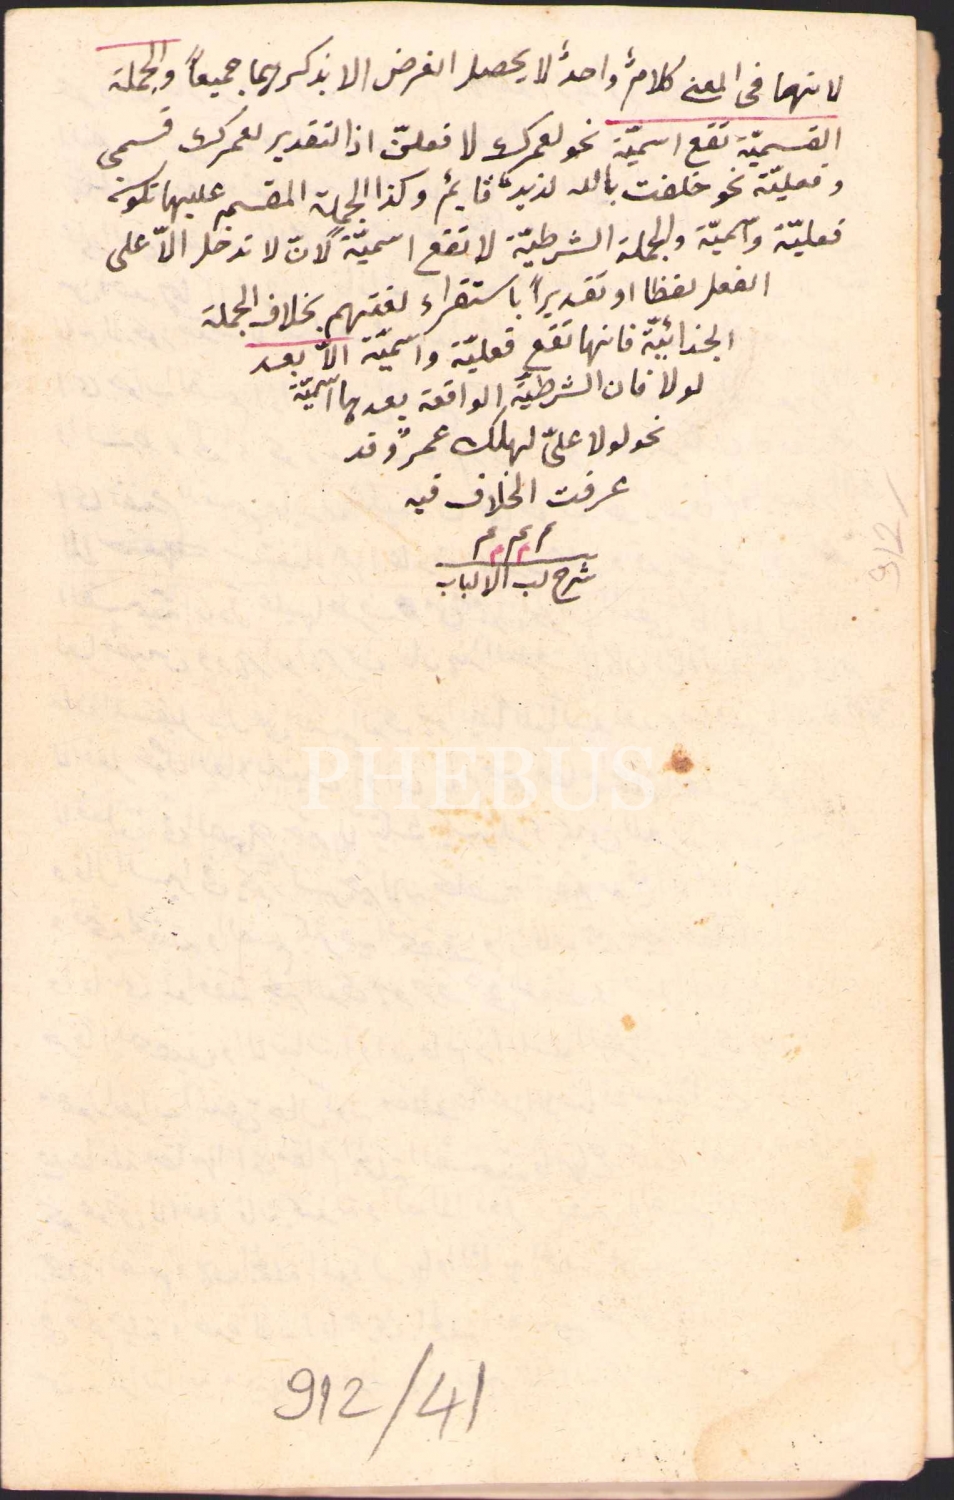 لانهما فى المعنى كلامٌ واحدٌ لا يحصل الغرض الا بذكرهما جميعاً والجملة
القسميّة تقع اسميّة نحو لعمرك لافعلنّ اذ التقدير لعمرك قسمى
وفعليّة نحو حلفت بالله لزيدٌ قايمٌ وكذا الجملة المقسم عليها تكون
فعليّة واسميّة والجملة الشرطيّة لا تقع اسميّة لانّ لا تدخل الاّ على
الفعل لفظا او تقديراً باستقراء لغتهم بخلاف الجملة
الجزائيّة فانها تقع فعليّة واسميّة الاّ بعد
لولا فان الشرطيّة الواقعة بعدها اسميّة
نحو لولا علىّ لهلك عمرٌ وقد
عرفت الخلاف فيه
م م م
شرح لب الالباب
912/
PHEBUS
912/41